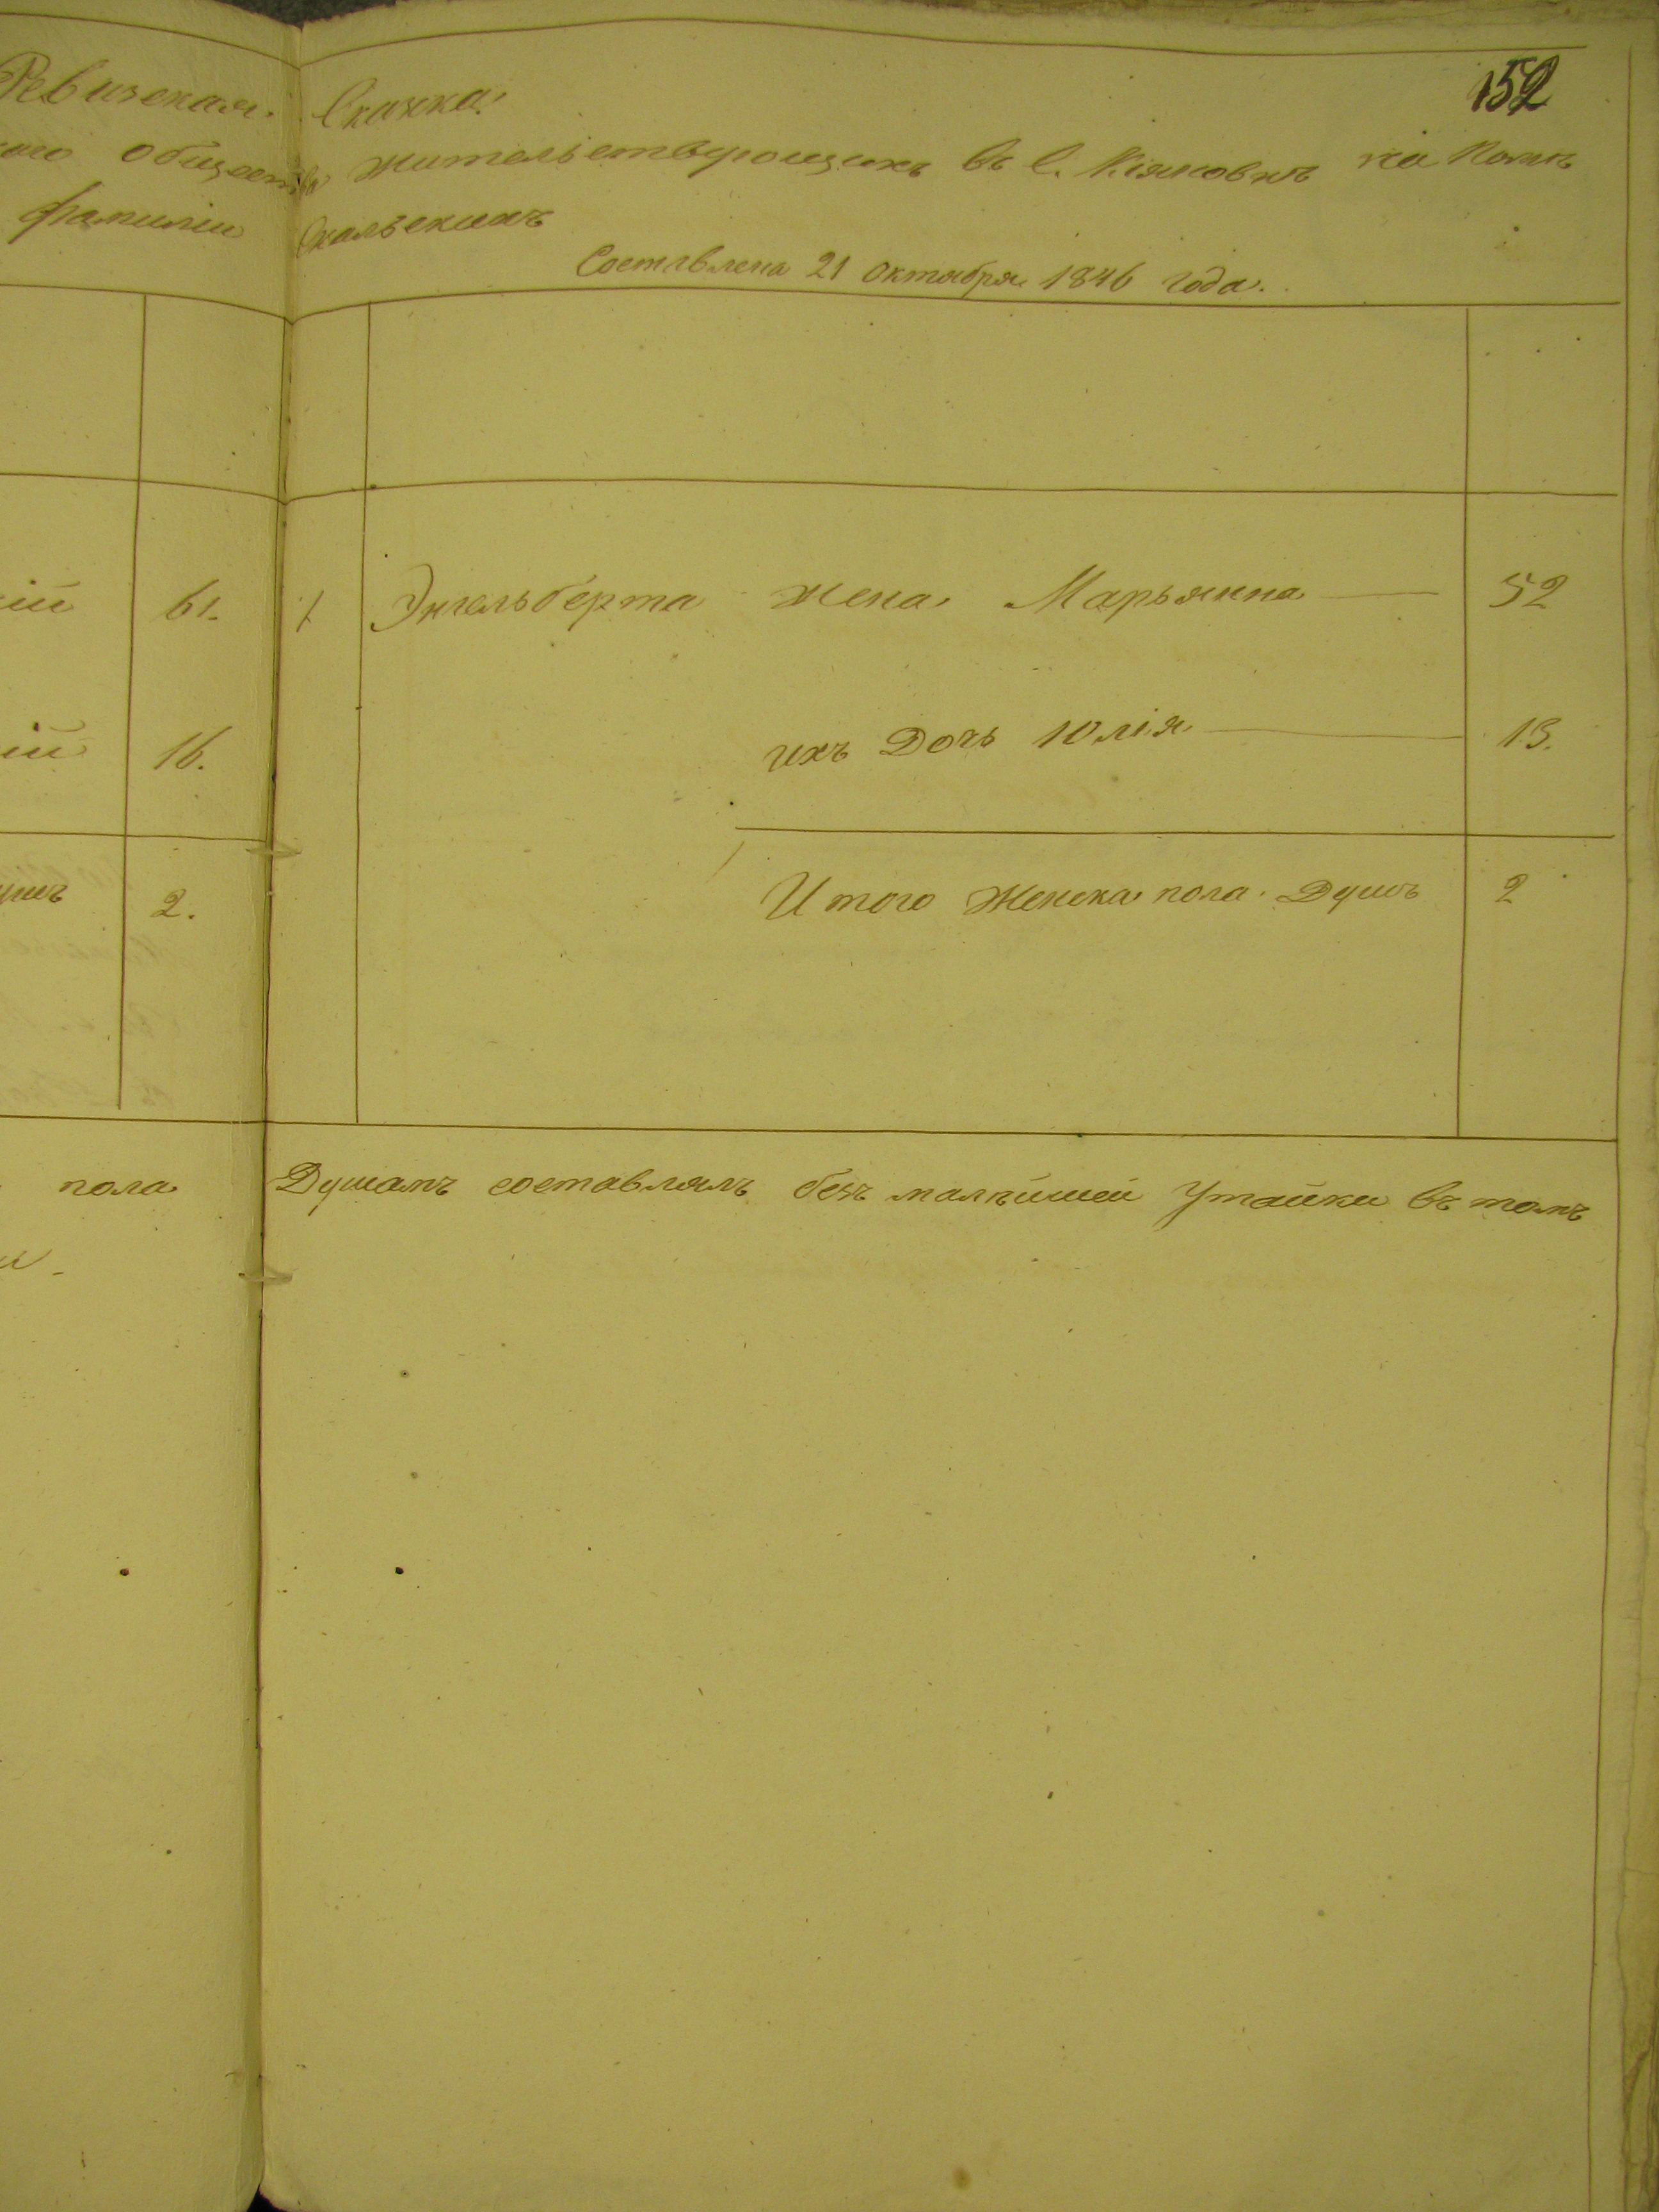 152
Ревизская Сказка!
ого общества жительствующихъ въ С. Кіяновкѣ на
фамиліи Скальскихъ
Составлена 21 Октября 1846 года.
ій 61. 1 Энгельберта жена Марьянна 52
ій 16. ихъ Дочь Юлія 13.
ушъ 2. Итого Женска пола Душъ 2
пола Душамъ составлялъ безъ малѣйшей Утайки въ томъ